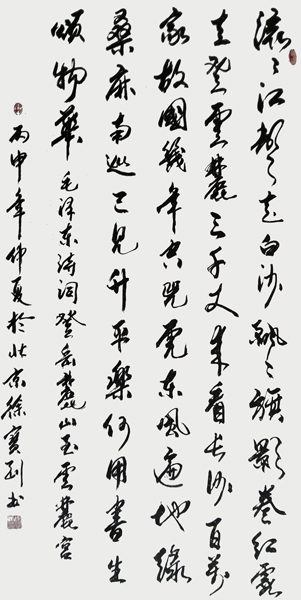 滚々江声走白沙飘々旗影卷红霞
直登雲麓三千丈来看长沙百万
家故國幾年空兕虎东风遍地绿
桑麻南巡已见升平樂何用書生
頌物華 毛泽东诗词登岳麓山至雲麓宫
丙申年仲夏於北京徐寶刚书